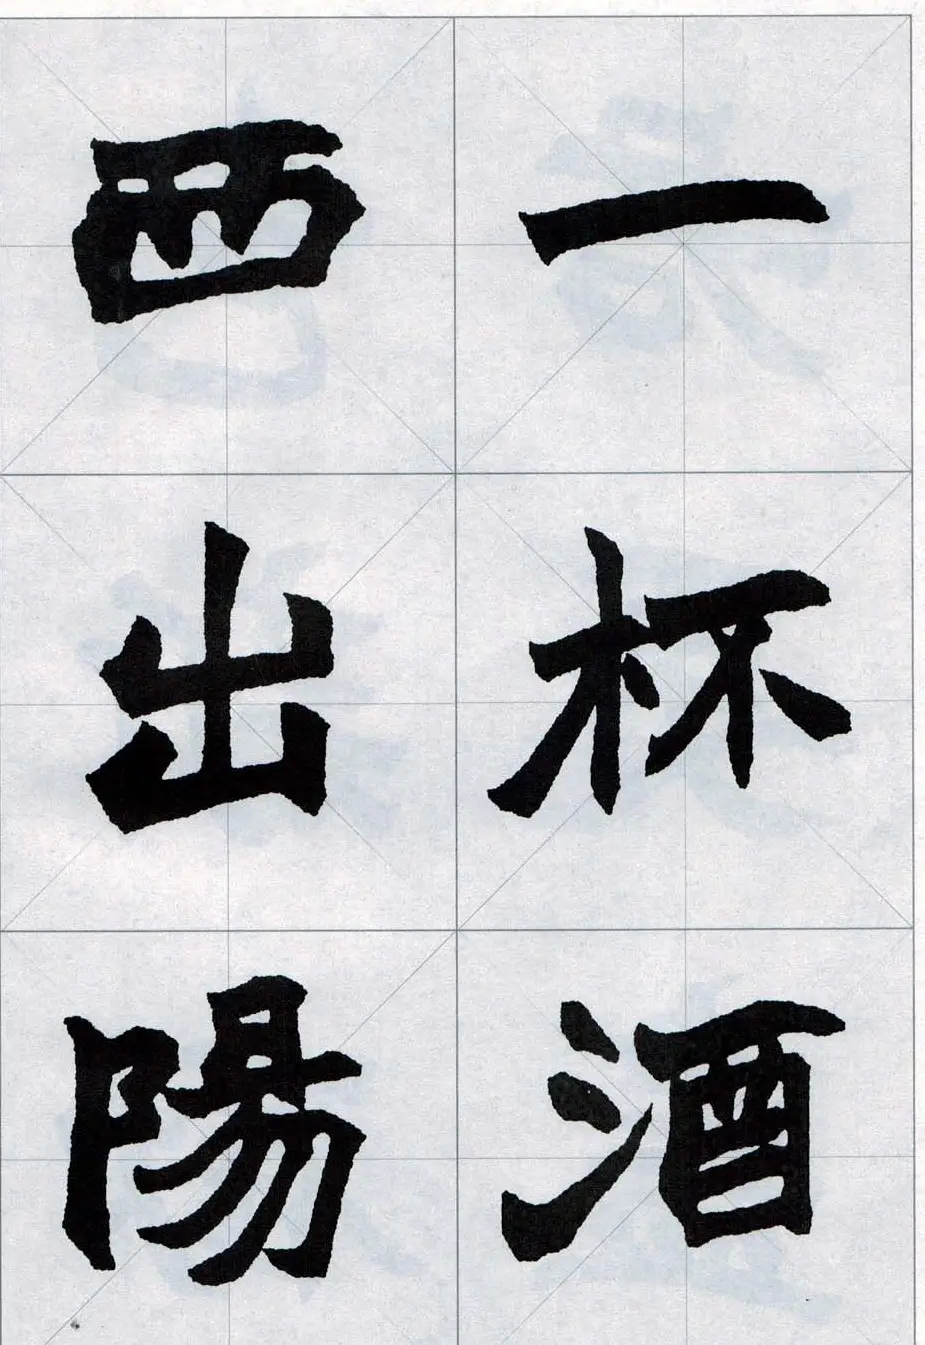 一杯酒
西出陽